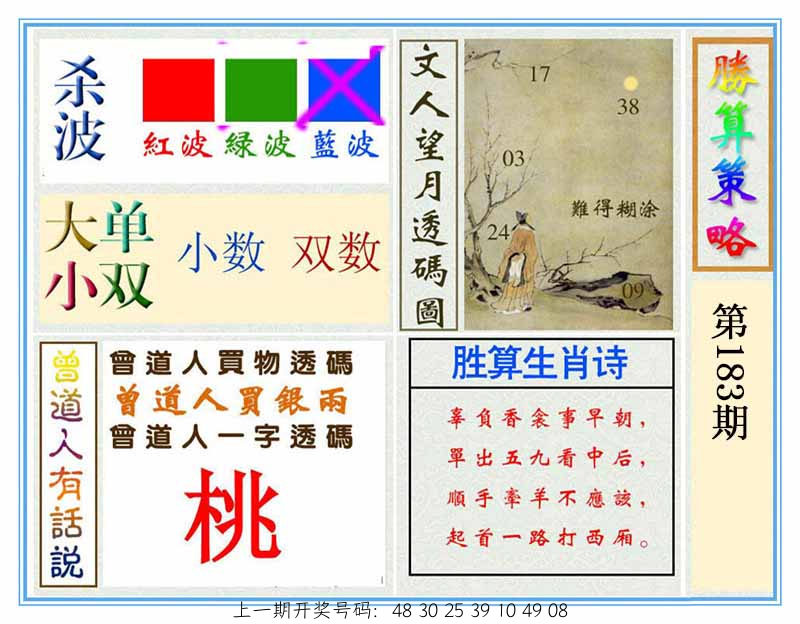 杀波
紅波 綠波 藍波
大单
小双
小数 双数
文人望月透碼圖
17
38
03
難得糊涂
24
09
勝算策略
第183期
曾道人有話説
曾道人買物透碼
曾道人買銀兩
曾道人一字透碼
桃
胜算生肖诗
辜負香衾事早朝，
單出五九看中后，
順手牽羊不應該，
起首一路打西厢。
上一期开奖号码：48 30 25 39 10 49 08